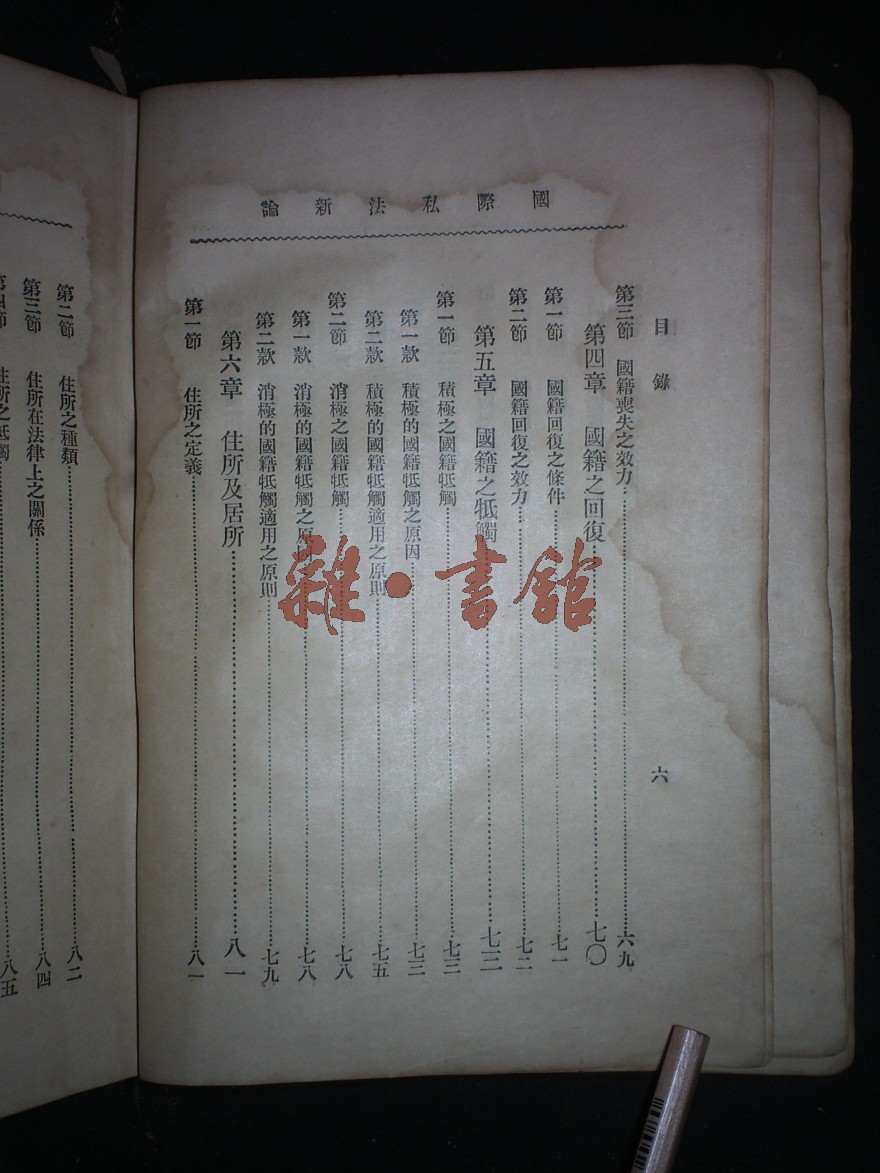 國際私法新論
目錄
六
第三節 國籍喪失之效力……六九
第四章 國籍之回復……七〇
第一節 國籍回復之條件……七一
第二節 國籍回復之效力……七二
第五章 國籍之牴觸……七三
第一節 積極之國籍牴觸……七三
第一款 積極的國籍牴觸之原因……七三
第二款 積極的國籍牴觸適用之原則……七五
第二節 消極之國籍牴觸……七八
第一款 消極的國籍牴觸之原因……七八
第二款 消極的國籍牴觸適用之原則……七九
第六章 住所及居所……八一
第一節 住所之定義……八一
第二節 住所之種類……八二
第三節 住所在法律上之關係……八四
第四節 住所之牴觸……八五
雜·書館